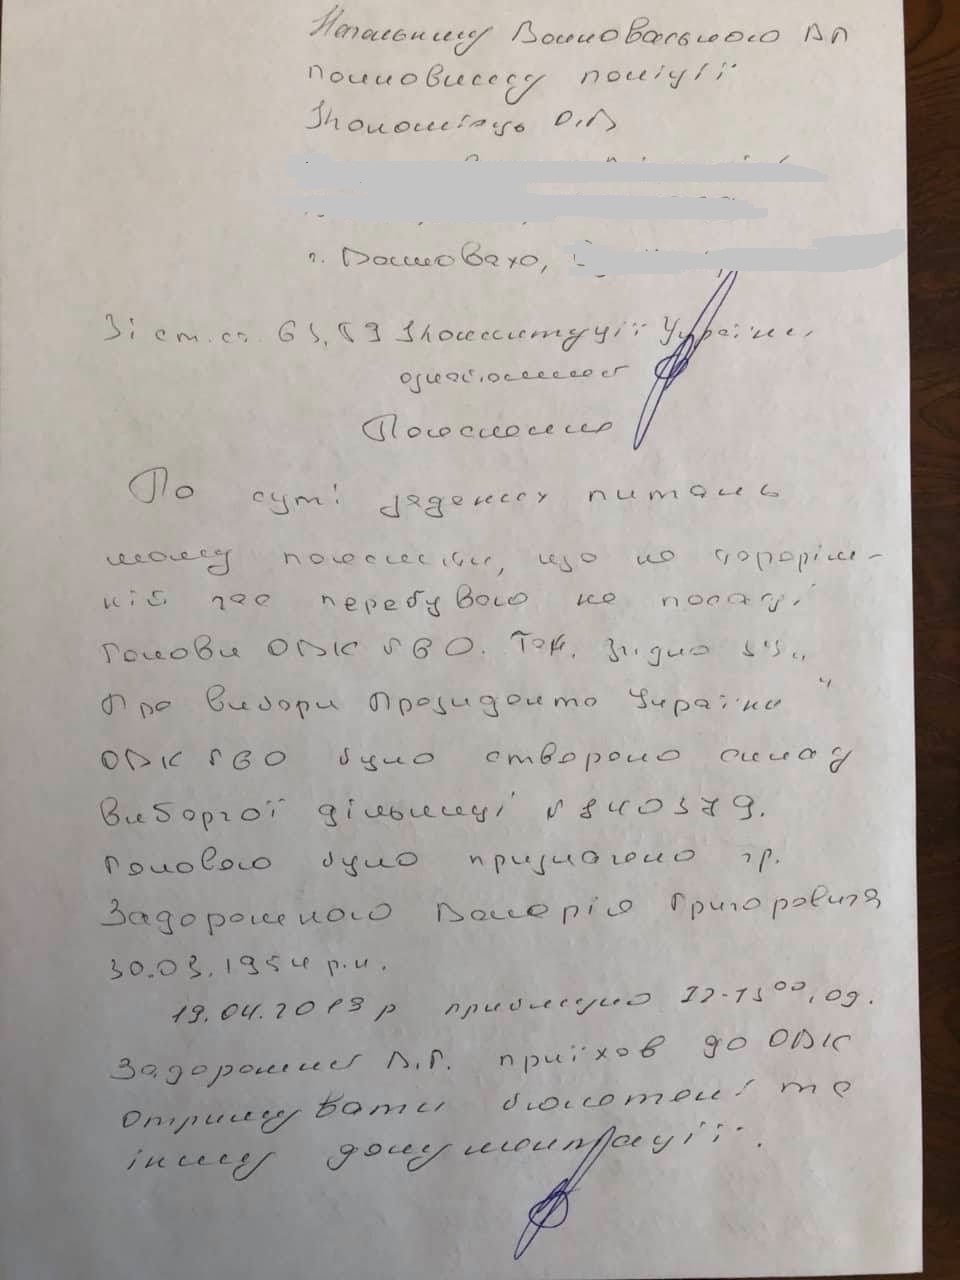 Начальнику Волноваського ВП
полковнику поліції
Економіець О.В
г. Волноваха,
Зі ст.ст. 63, 59 Конституції України
ознайомлена
Пояснення
По суті заданих питань
можу пояснити, що на теперіш-
ній час перебуваю на посаді
Голови ОВК №60. Так, згідно ЗУ „
Про вибори Президента України"
ОВК №60 було створено склад
виборчої дільниці № 140379.
Головою було призначено гр.
Задорожного Валерія Григоровича
30.03.1954 р.н.
19.04.2019 р приблизно 12-13⁰⁰ год.
Задорожній В.Г. приїхав до ОВК
отримувати бюлетені та
іншу документації.